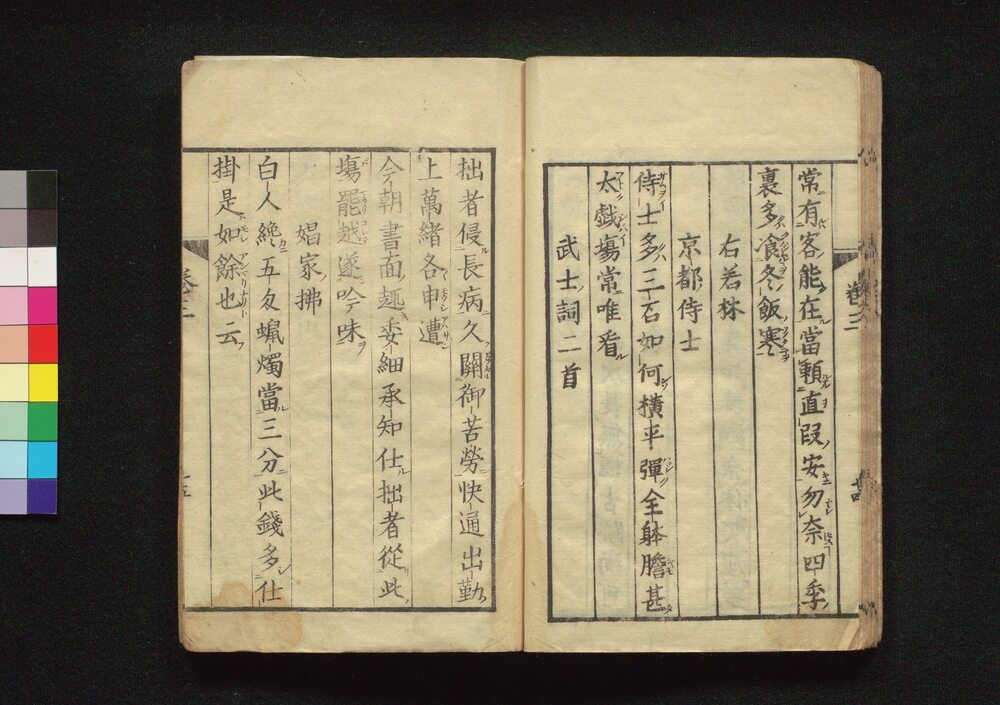 常有客能在當頼直段安勿奈四季
裏多飡冬飯寒
右若林
京都侍士
侍士多三石如何横平彈全躰膽甚
太戯塲常唯看
武士詞二首
卷三
拙者侵長病久闕御苦勞快通出勤
上萬緒各申遭
今朝書面趣委細承知仕拙者從此
塲罷越遂吟味
娼家拂
白人纔五匁蝋燭當三分此錢多仕
掛是如餘也云